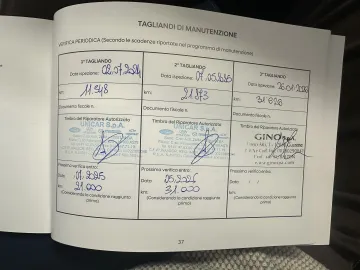 TAGLIANDI DI MANUTENZIONE
VERIFICA PERIODICA (Secondo le scadenze riportate nel programma di manutenzione)
1° TAGLIANDO
Data ispezione:
km: 11.948
Documento fiscale n.
Timbro del Riparatore Autorizzato
UNICAR S.p.A.
Prossima verifica entro:
Data 07.2025
km: 21.000
(Considerando la condizione raggiunta prima)
2° TAGLIANDO
Data ispezione: 07.05.2025
km: 21.573
Documento fiscale n.
Timbro del Riparatore Autorizzato
UNICAR S.p.A.
Prossima verifica entro:
Data 05.2026
km: 31.000
(Considerando la condizione raggiunta prima)
3° TAGLIANDO
Data ispezione:
km:
Documento fiscale n.
Timbro del Riparatore Autorizzato
GINO
Prossima verifica entro:
Data / /
km:
(Considerando la condizione raggiunta prima)
37